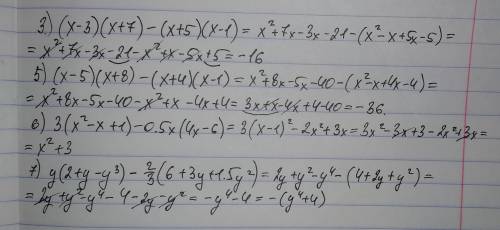 3.) (x-3)(x+7)-(x+5)(x-1)=x²+7x-3x-21-(x²-x+5x-5)=
=x²+7x-3x-21-x²+x-5x+5=-16
5) (x-5)(x+8)-(x+4)(x-1)=x²+8x-5x-40-(x²-x+4x-4)=
=x²+8x-5x-40-x²+x-4x+4=3x+x-4x+4-40=-36.
6) 3(x²-x+1)-0.5x(4x-6)=3(x-1)²-2x²+3x=3x²-3x+3-2x²+3x=
=x²+3
7) y(2+y-y³)-2/3(6+3y+1.5y²)=2y+y²-y⁴-(4+2y+y²)=
=2y+y²-y⁴-4-2y-y²=-y⁴-4=-(y⁴+4)